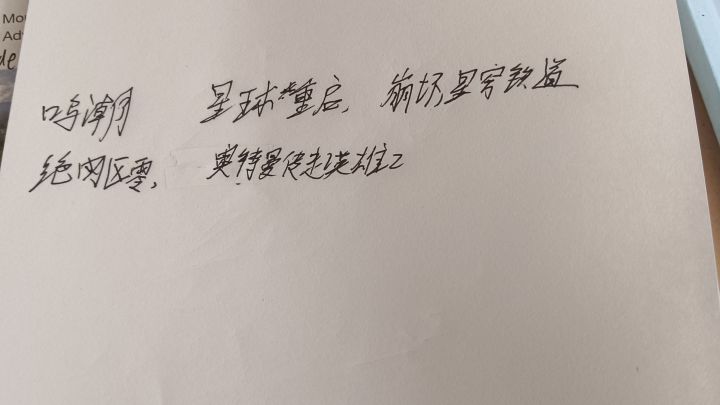 Mo
Ad
de
鸣潮 星球重启, 崩坏星穹铁道
绝区零, 奥特曼传奇英雄2